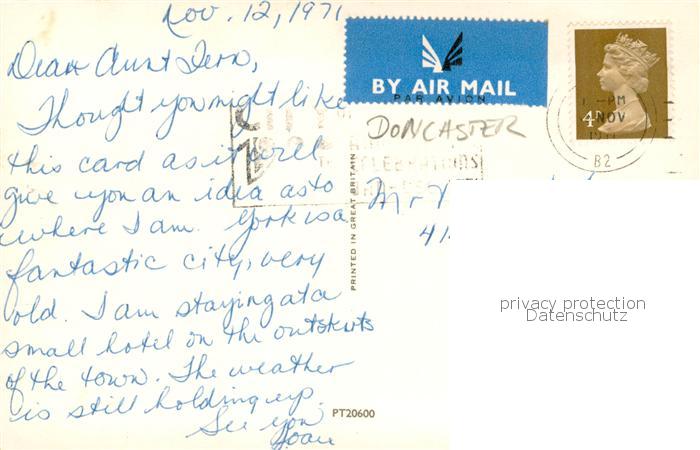 Nov. 12, 1971
Dear Aunt Fern,
Thought you might like
this card as it will
give you an idea as to
where I am. York is a
fantastic city, very
old. I am staying at a
small hotel on the outskirts
of the town. The weather
is still holding up.
See you
Joan
BY AIR MAIL
PAR AVION
DONCASTER
4P
-PM
NOV
1971
B2
CELEBRATIONS
PRINTED IN GREAT BRITAIN
Mr
41
privacy protection
Datenschutz
PT20600